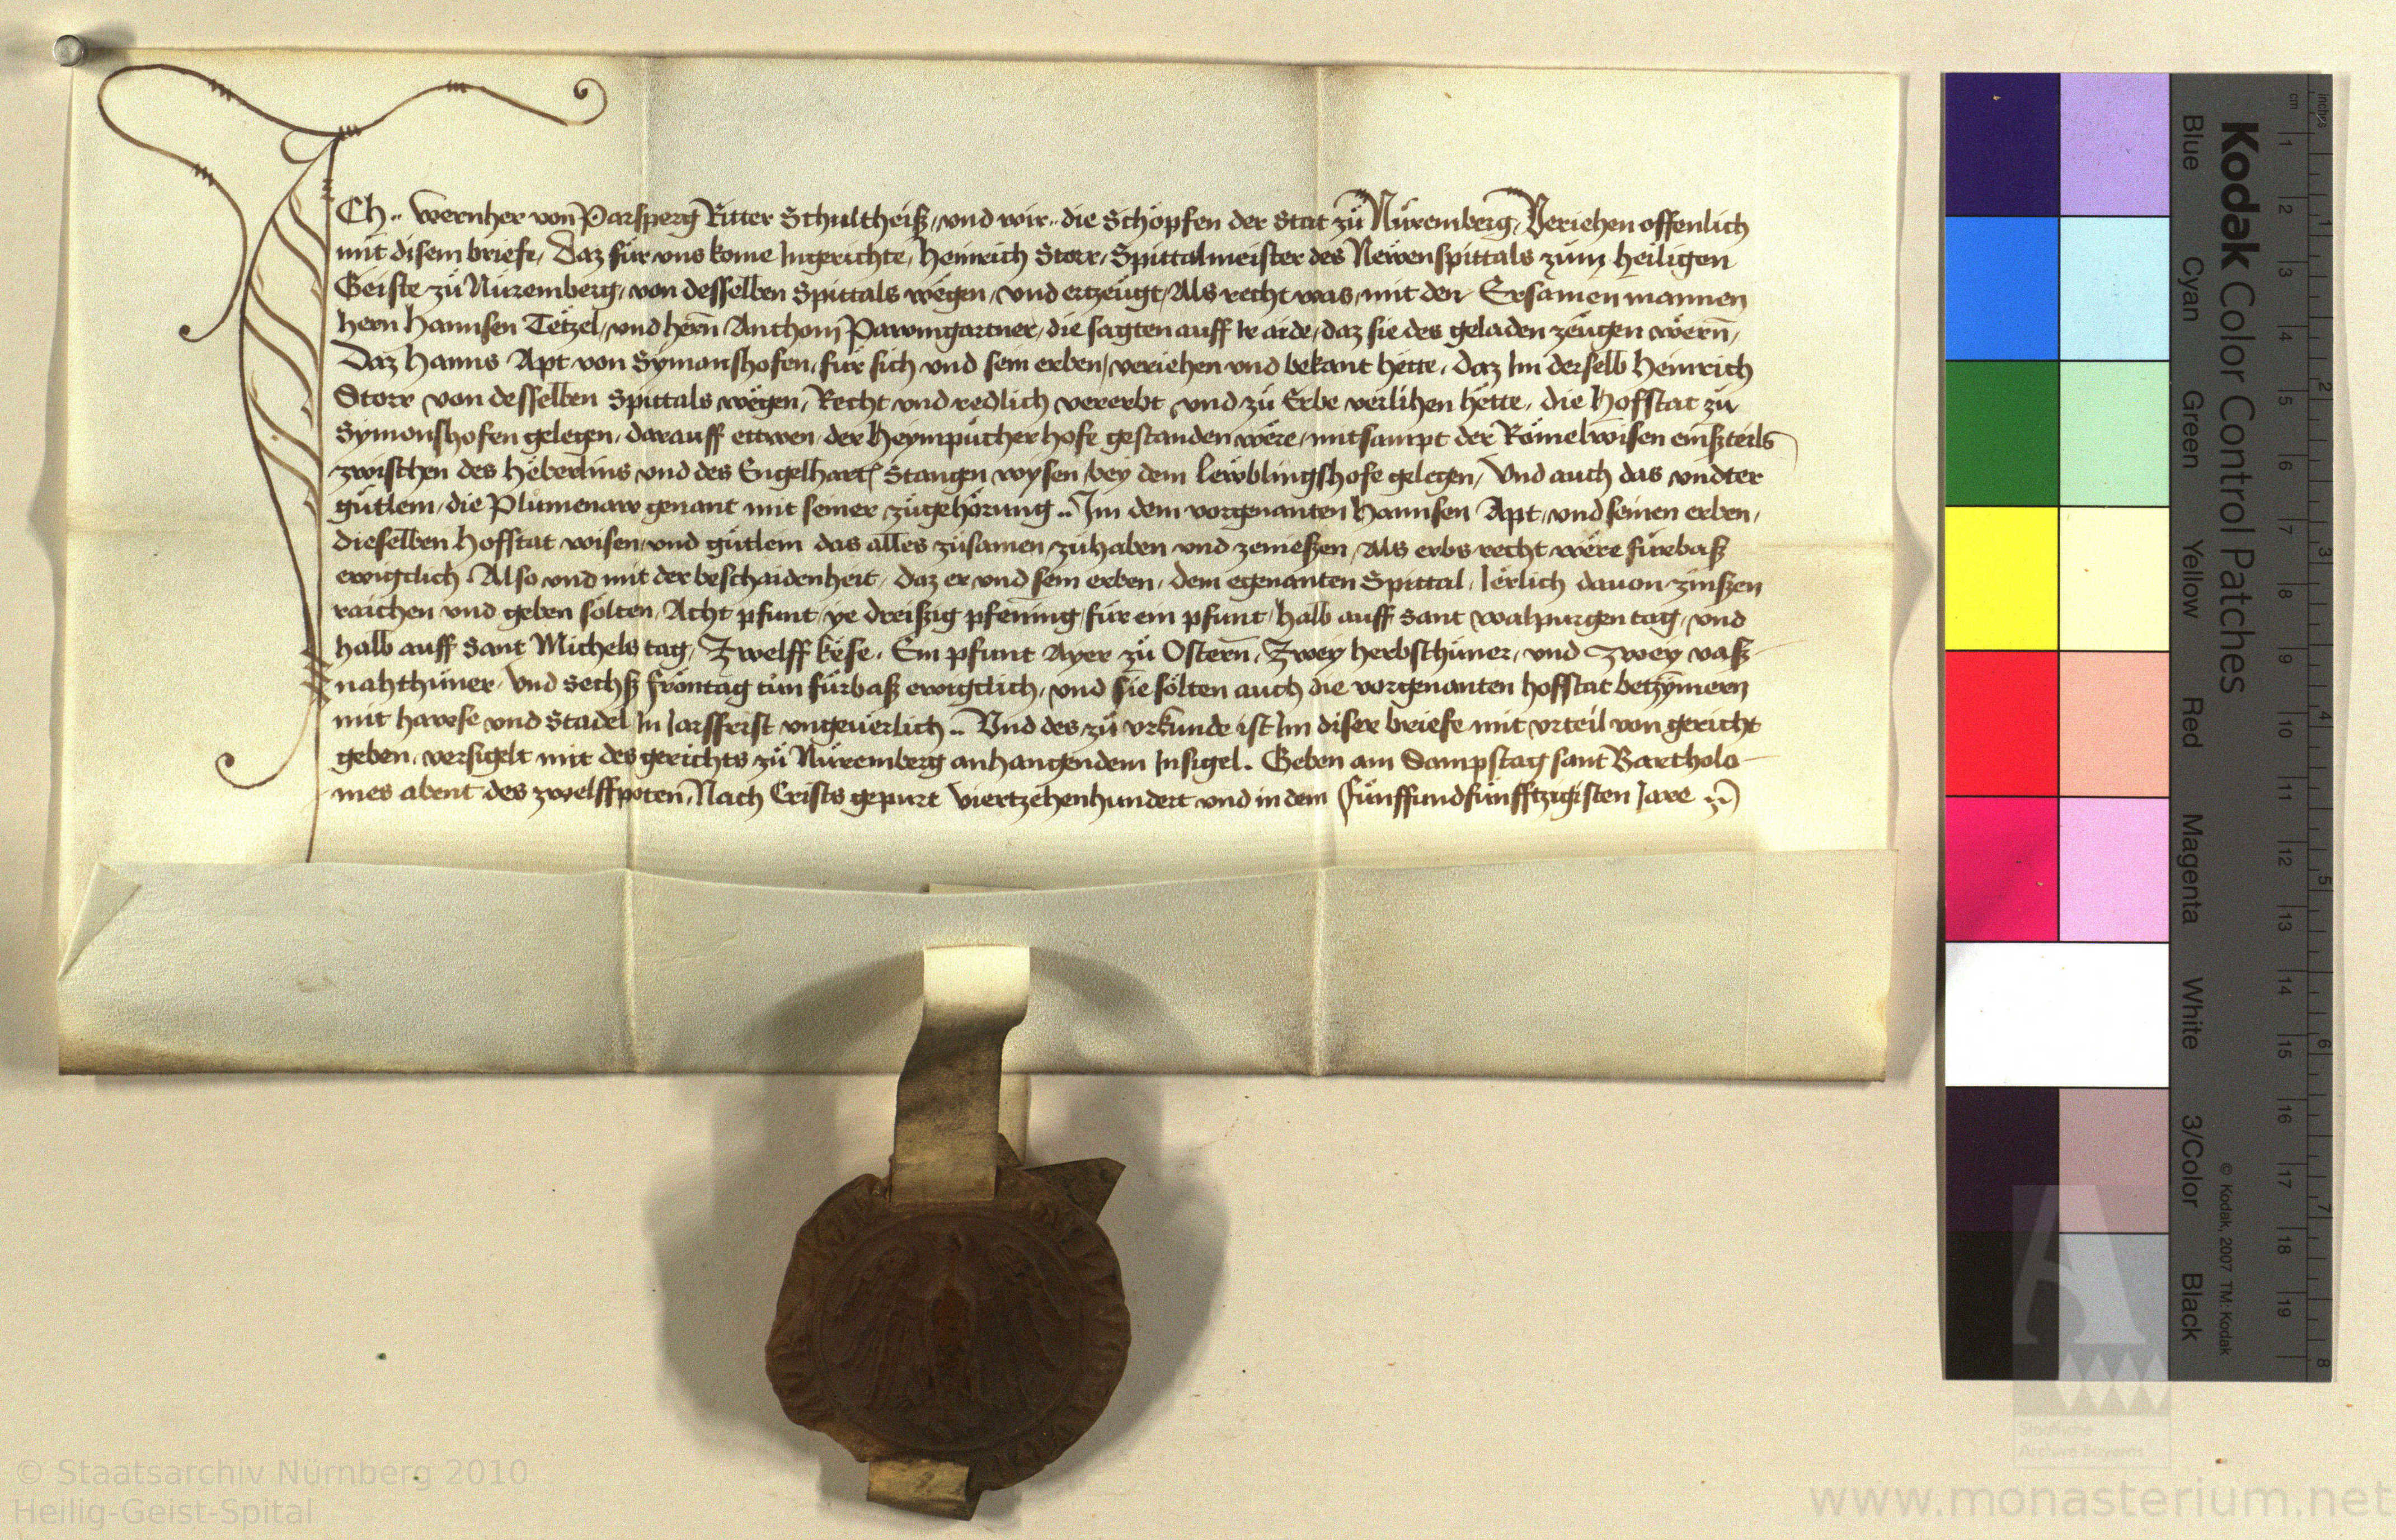 ICh .. Wernher von Parsperg Ritter Schultheiß, vnd wir .. die Schöpfen der Stat zů Nüremberg, Veriehen offenlich
mit disem briefe, Daz für vns kome Ingerichte, Heinrich Storr, Spittalmeister des Newenspittals zům heiligen
Geiste zů Nüremberg, von desselben Spittals wegen, vnd ertzeugt, Als recht was, mit den Ersamen mannen
hern Hannsen Tetzel, vnd hern̄ Anthonj Pawmgartner, die sagten auff ir aide, daz sie des geladen zeugen wern̄,
Daz Hanns Apt von Symonshofen, für sich vnd sein erben, veriehen vnd bekant hette, daz Im derselb Heinrich
Storr von desselben Spittals wegen, Recht vnd redlich vererbt vnd zů Erbe verlihen hette, die Hofstat zů
Symonshofen gelegen, darauff ettwen der Heympucher hofe gestanden were, mitsampt der Römelwisen einßteils
zwischen des Heberlins vnd des Engelhart Stangen wysen, bey dem Lewblingshofe gelegen, Vnd auch das vndter
gütlein, die Plumenaw genant mit seiner zůgehörung .. Im dem vorgenanten Hannsen Apt, vnd seinen erben,
dieselben Hofstat wisen, vnd gütlein das alles zůsamen zůhaben vnd zenießen, Als erbs recht were fürbaß
ewigclich Also vnd mit der beschaidenheit, daz er vnd sein erben, dem egenanten Spittal, Ierlich dauon zinßen
raichen vnd geben sölten, Acht pfunt, ye dreißig pfening, für ein pfunt, halb auff Sant Walpurgen tag, vnd
halb auff Sant Michels tag, Zwelff kese, Ein pfunt Ayer zů Ostern̄, Zwey herbsthüner, vnd zwey vaß-
nahthüner, Vnd Sechß fröntag tůn fürbaß ewigclich, vnd sie sölten auch die vorgenanten hofstat betzymern
mit hawse vnd Stadel In Jarssfrist vngeuerlich .. Vnd des zů vrkunde ist Im diser briefe mit vrteil von gericht
geben, versigelt mit des gerichts zů Nüremberg anhangendem Insigel. Geben am Sampstag sant Bartholo-
mes abent des zwelffpoten, Nach Crists gepurt Viertzehenhundert vnd in dem fünffundfünfftzigisten Jare
Kodak Color Control Patches
© Kodak, 2007 TM: Kodak
Blue Cyan Green Yellow Red Magenta White 3/Color Black
cm 1 2 3 4 5 6 7 8 9 10 11 12 13 14 15 16 17 18 19
inches 1 2 3 4 5 6 7 8
© Staatsarchiv Nürnberg 2010
Heilig-Geist-Spital
Staatliche
Archive Bayerns
www.monasterium.net